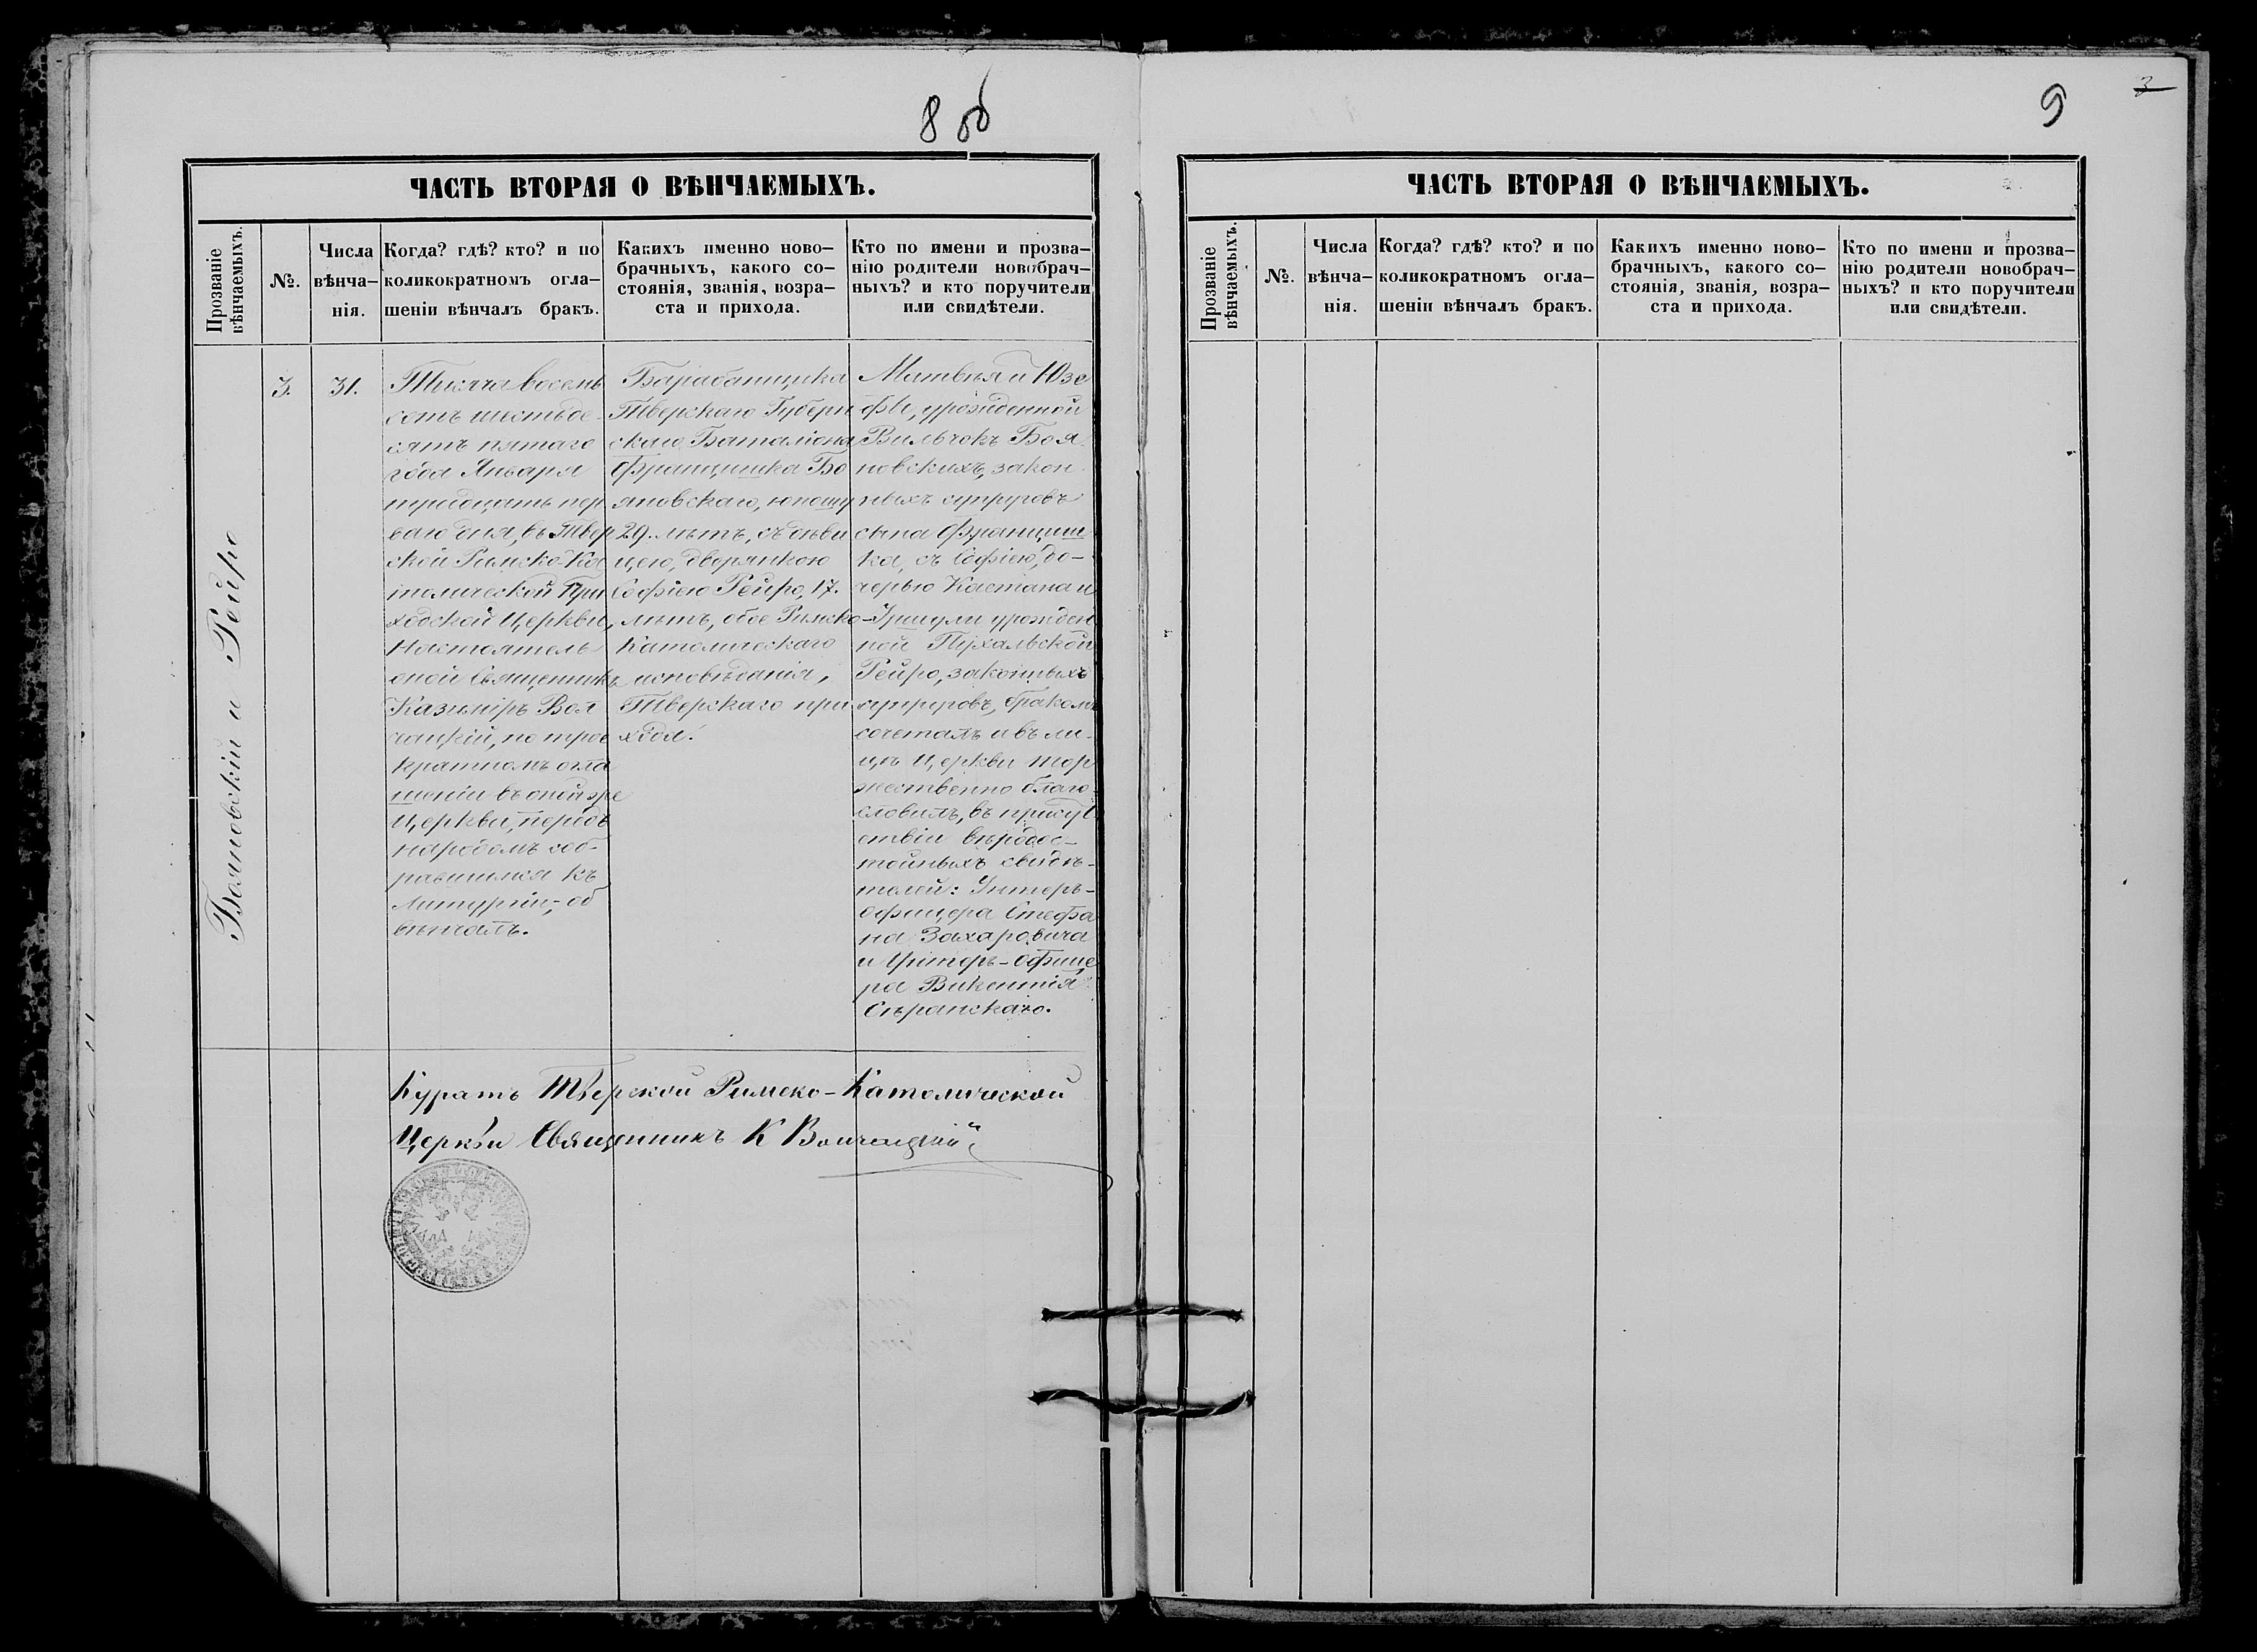 8 об
ЧАСТЬ ВТОРАЯ О ВѢНЧАЕМЫХЪ.
Прозваніе
вѣнчаемыхъ.
№.
Числа
вѣнча-
нія.
Когда? гдѣ? кто? и по
коликократномъ огла-
шеніи вѣнчалъ бракъ.
Какихъ именно ново-
брачныхъ, какого со-
стоянія, званія, возра-
ста и прихода.
Кто по имени и прозва-
нію родители новобрач-
ныхъ? и кто поручители
или свидѣтели.
Бояновскій и Рейро
3.
31.
Тысяча восемь
сотъ шестьде-
сятъ пятаго
года Января
тридцать пер
ваго дня, въ Твер
ской Римско-Ка
толической При
ходской Церкви,
Настоятель
оной Священникъ
Казиміръ Вол
чацкій, по трое
кратномъ огла
шеніи въ оной же
Церкви, передъ
народомъ соб-
равшимся къ
Литургіи, об
вѣнчалъ.
Барабанщика
Тверскаго Губерн
скаго Баталіона
Францишка Бо
яновскаго, юношу
29. лѣтъ, съ дѣви
цею, дворянкою
Софіею Рейро, 17.
лѣтъ, обое Римско-
Католическаго
исповѣданія,
Тверскаго при
хода.
Матвѣя и Юзе
фы, урожденной
Вильчокъ Боя
новскихъ, закон
ныхъ супруговъ
сына Францищ
ка, съ Софіею, до-
черью Каетана и
Уршули урожден
ной Пухальской
Рейро, законныхъ
супруговъ, бракомъ
сочеталъ и въ ли-
цѣ Церкви тор
жественно благо-
словилъ, въ присут
ствіи вѣродос-
тойныхъ свидѣ-
телей: Унтеръ-
Офицера Стефа
на Захаровича
и Унтеръ-Офице
ра Викентія
Сѣранскаго.
Куратъ Тверской Римско-Католической
Церкви Священникъ К Волчацкій
9
3
ЧАСТЬ ВТОРАЯ О ВѢНЧАЕМЫХЪ.
Прозваніе
вѣнчаемыхъ.
№.
Числа
вѣнча-
нія.
Когда? гдѣ? кто? и по
коликократномъ огла-
шеніи вѣнчалъ бракъ.
Какихъ именно ново-
брачныхъ, какого со-
стоянія, званія, возра-
ста и прихода.
Кто по имени и прозва-
нію родители новобрач-
ныхъ? и кто поручители
или свидѣтели.